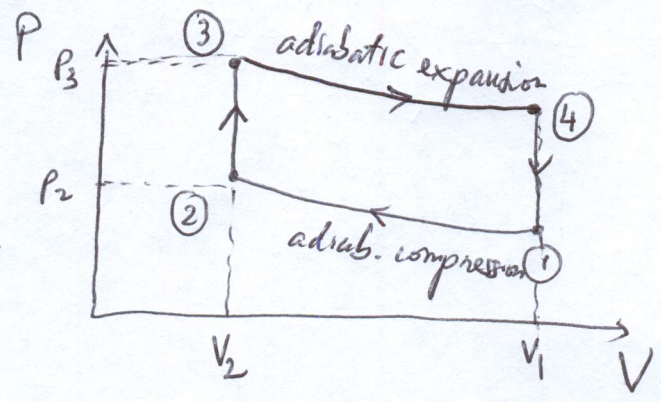 P
③
adiabatic expansion
P₃
④
P₂
②
adiab. compression
①
V₂
V₁
V